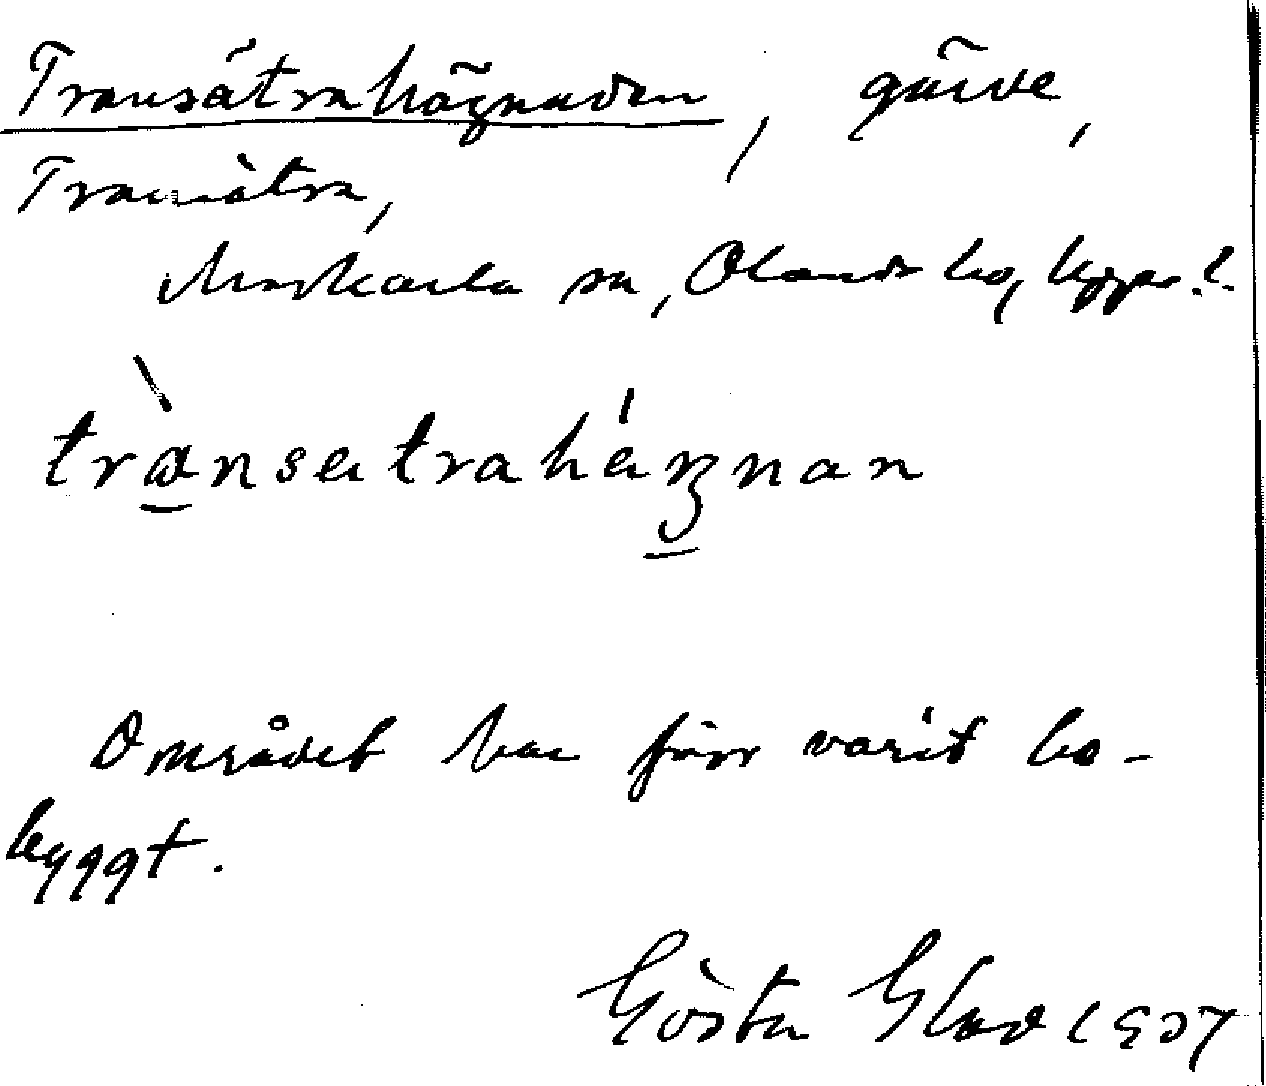 Transätrahägnaden, gärde,
Transätra,
Morkarla sn, Olands hd, Uppl.
trànsatraháŋnan
Området har förr varit be-
byggt.
Gösta Glad 1937